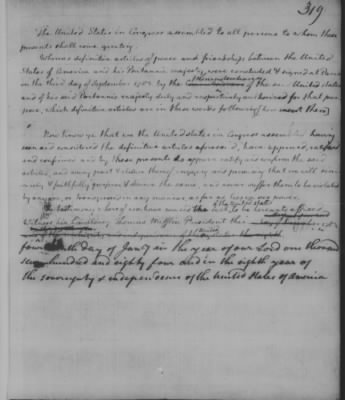 319
The United States in Congress assembled to all persons to whom these
presents shall come greeting.
Whereas definitive articles of peace and friendship between the United
States of America and his Britannic majesty were concluded & signed at Paris
on the third day of September 1783 by the plenipotentiaries of the said United States
and of his said Britannic majesty duly and respectively authorized for that pur
pose, which definitive articles are in these words following (here insert them)
Now know ye that we the United states in Congress assembled having
seen and considered the definitive articles aforesaid, have approved, ratified
and confirmed and by these presents do approve ratify and confirm the said
articles, and every part & clause thereof, engaging and promising that we will since
rely & faithfully perform & observe the same, and never suffer them to be violated
by any one, or transgressed in any manner as far as lies in our power.
In testimony whereof we have caused the seal of the United States to be hereunto affixed
Witness his Excellency Thomas Mifflin President this
fourteenth day of Jany in the year of our Lord one thousand
seven hundred and eighty four and in the eighth year of
the sovereignty & independence of the United States of America